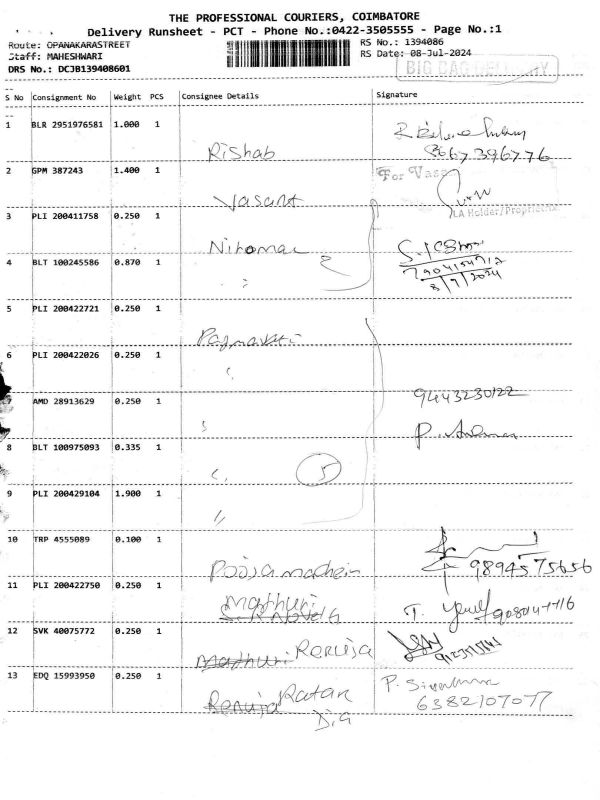 THE PROFESSIONAL COURIERS, COIMBATORE
Delivery Runsheet - PCT - Phone No.:0422-3505555 - Page No.:1
Route: OPANAKARASTREET
RS No.: 1394086
Staff: MAHESHWARI
RS Date: 08-Jul-2024
DRS No.: DCJB139408601
BIG CAG DELIVERY
S No Consignment No Weight PCS Consignee Details Signature
1 BLR 2951976581 1.000 1
Rishab
8667396776
2 GPM 387243 1.400 1
For Vasa
Vasant
LA Holder/Proprietix
3 PLI 200411758 0.250 1
4 BLT 100245586 0.870 1
7904154712
8/7/2024
5 PLI 200422721 0.250 1
6 PLI 200422026 0.250 1
7 AMD 28913629 0.250 1
9443230122
8 BLT 100975093 0.335 1
5
9 PLI 200429104 1.900 1
10 TRP 4555089 0.100 1
Pooja
9894575656
11 PLI 200422750 0.250 1
Mathuri
T.
12 SVK 40075772 0.250 1
Mathuri Renuja
13 EDQ 15993950 0.250 1
Renuja Ratan
P.
6382107077